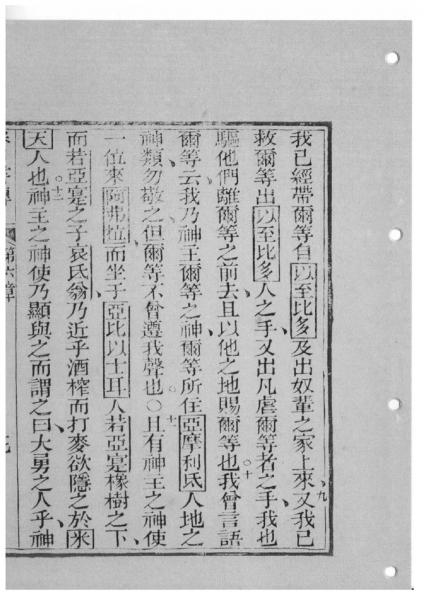 我已經帶爾等自以至比多及出奴輩之家上來九又我已
救爾等出以至比多人之手又出凡虐爾等者之手我也
驅他們離爾等之前去且以他之地賜爾等也十我曾言語
爾等云我乃神主爾等之神爾等所住亞摩利氏人地之
神類勿敬之但爾等不曾遵我聲也○十一且有神主之神使
一位來阿弗拉而坐于亞比以士耳人若亞寔橡樹之下
而若亞寔之子哀氐翁乃近乎酒榨而打麥欲隱之於米
天人也十二神主之神使乃顯與之而謂之曰大勇之人乎神
第六章